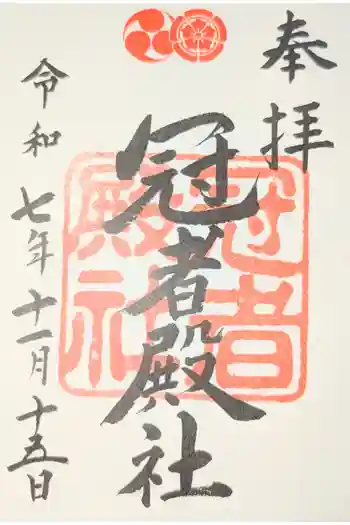 奉拝
冠者殿社
冠者
殿社
令和七年十一月十五日